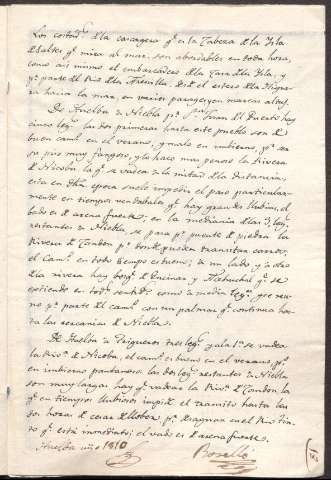 Los costad.s de la cascagera q.e en la Cabeza de la Isla
de Saltes q.e mira al mar, son abordables en toda hora,
como asi mismo el embarcadero de la Torre de la Isla, y
p.r parte del Rio de la
hacia la mar, en varios parages y en mareas altas.
De Huelba a Niebla p.r S.n Juan del Puerto hay
cinco leg.s las dos primeras hasta este pueblo son de
buen cam.o en el verano, y malo en imbierno, p.r ser
su piso muy fangoso, y lo hace mas penoso la Rivera
de Nicoba, la q.e se vadea a la mitad de la distancia,
esta en dha epoca suele impedir el paso particularm-
mente en tiempos vendabales q.e hay grandes llubias, el
bado es de arena fuerte, en la mediania de las 3 leg.s
restantes a Niebla, se pasa p.r puente de piedra la
Rivera de Candon p.r donde pueden transitar carros,
el Cam.o en todo tiempo es bueno; a un lado y a otro
de la rivera hay bosq.e de Encinas y q.e se
estiende en todos sentidos como a media leg.a
no p.r parte del cam.o con un palmar q.e continua has-
ta las cercanias de Niebla.
De Huelba a Trigueros tres leg.s y a la 1.a se vadea
la Riv.a de Nicoba, el cam.o es bueno en el verano, y
en imbierno pantanoso. las dos leg.s restantes a Niebla
son muy largas hay q.e vadear la Riv.a de Candon, la
q.e en tiempos llubiosos impide el transito hasta las
dos horas de cesar de llober p.r desaguar en el Rio Tin-
to q.e está inmediato; el vado es de arena fuerte.
Huelba año 1810